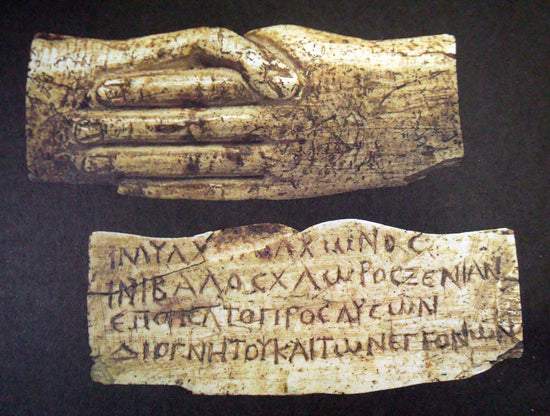 ΙΜΥΛΧ ΛΧΩΝΟΣ
ΙΝΙΒΑΛΟΣΧΛΩΡΟΣΞΕΝΙΑΝ
ΕΠΟΗΣΑΤΟΠΡΟΣΛΥΣΩΝ
ΔΙΟΓΝΗΤΟΥΚΑΙΤΩΝΕΓΓΟΝΩΝ